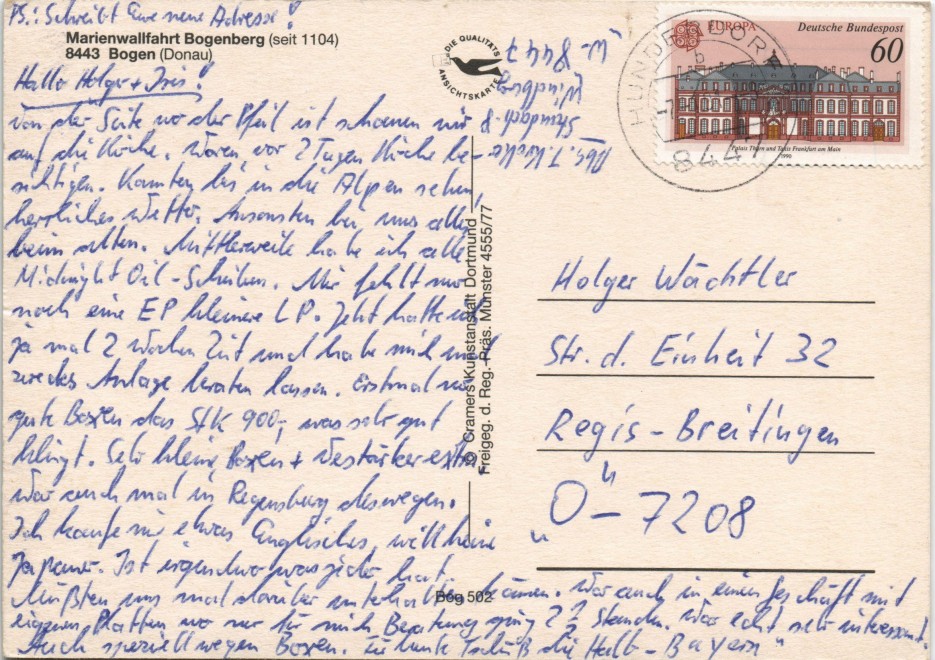 PS.: Schreibt Eure neue Adresse!
Marienwallfahrt Bogenberg (seit 1104)
8443 Bogen (Donau)
Hallo Holger + Iris!
Von der Seite wo der Pfeil ist schauen wir
auf die Kirche. Waren vor 2 Tagen Kirche be-
sichtigen. Konnten bis in die Alpen sehen,
herrliches Wetter. Ansonsten bei uns alles
beim alten. Mittlerweile habe ich alle
Midnight Oil-Scheiben. Mir fehlt nur
noch eine EP kleinere LP. Jetzt hatte ich
ja mal 2 Wochen Zeit und habe mich mal
zwecks Anlage beraten lassen. Erstmal
gute Boxen das Stk 900,- was sehr gut
klingt. Sehr kleine Boxen + Verstärker extra
War auch mal in Regensburg deswegen.
Ich kaufe mir etwas Englisches, will keine
Japaner. Ist irgendwo was jeder hat.
Müßten uns mal darüber unterhalten können. War auch in einem Geschäft mit
eigenen Platten wo nur für mich Beratung ging 2 Stunden. War echt sehr interessant!
Auch speziell wegen Boxen. Für heute Tschüß die Halb-Bayern"
DIE QUALITÄTS
ANSICHTSKARTE
Abs. T.
8
Windberg
W-8447
© Cramers Kunstanstalt Dortmund
Freigeg. d. Reg.-Präs. Münster 4555/77
Bog 502
EUROPA
Deutsche Bundespost
60
Palais Thurn und Taxis Frankfurt am Main
1990
HUNDERDORF
b
8447
Holger Wächtler
Str. d. Einheit 32
Regis-Breitingen
„O"-7208